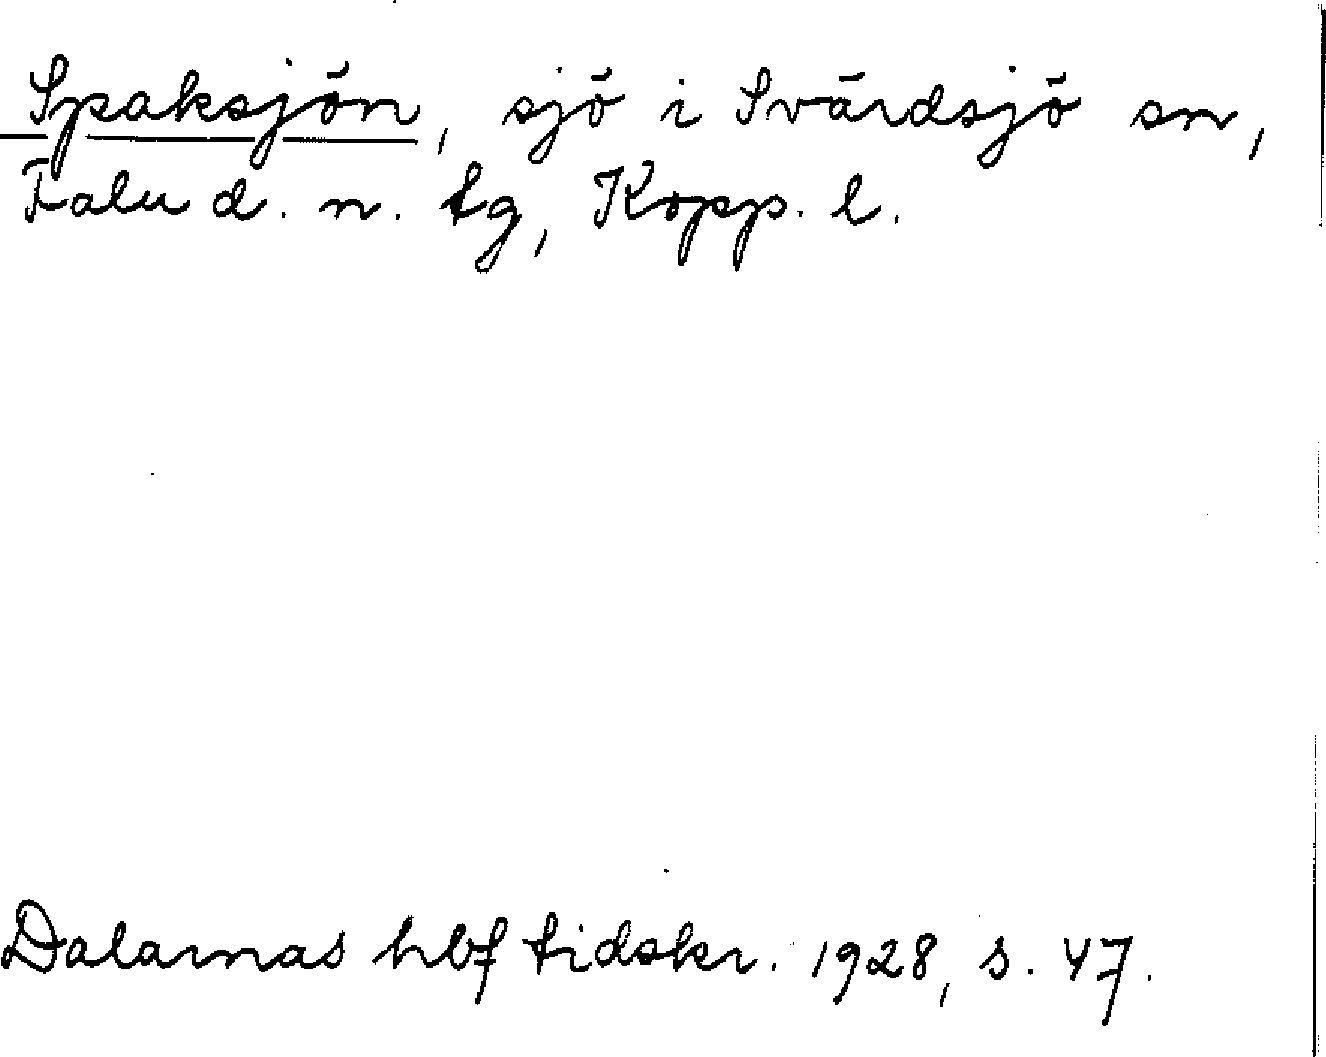 Spaksjön, sjö i Svärdsjö sn,
Falu d. n. tg, Kopp. l.
Dalarnas hbf tidskr. 1928, s. 47.